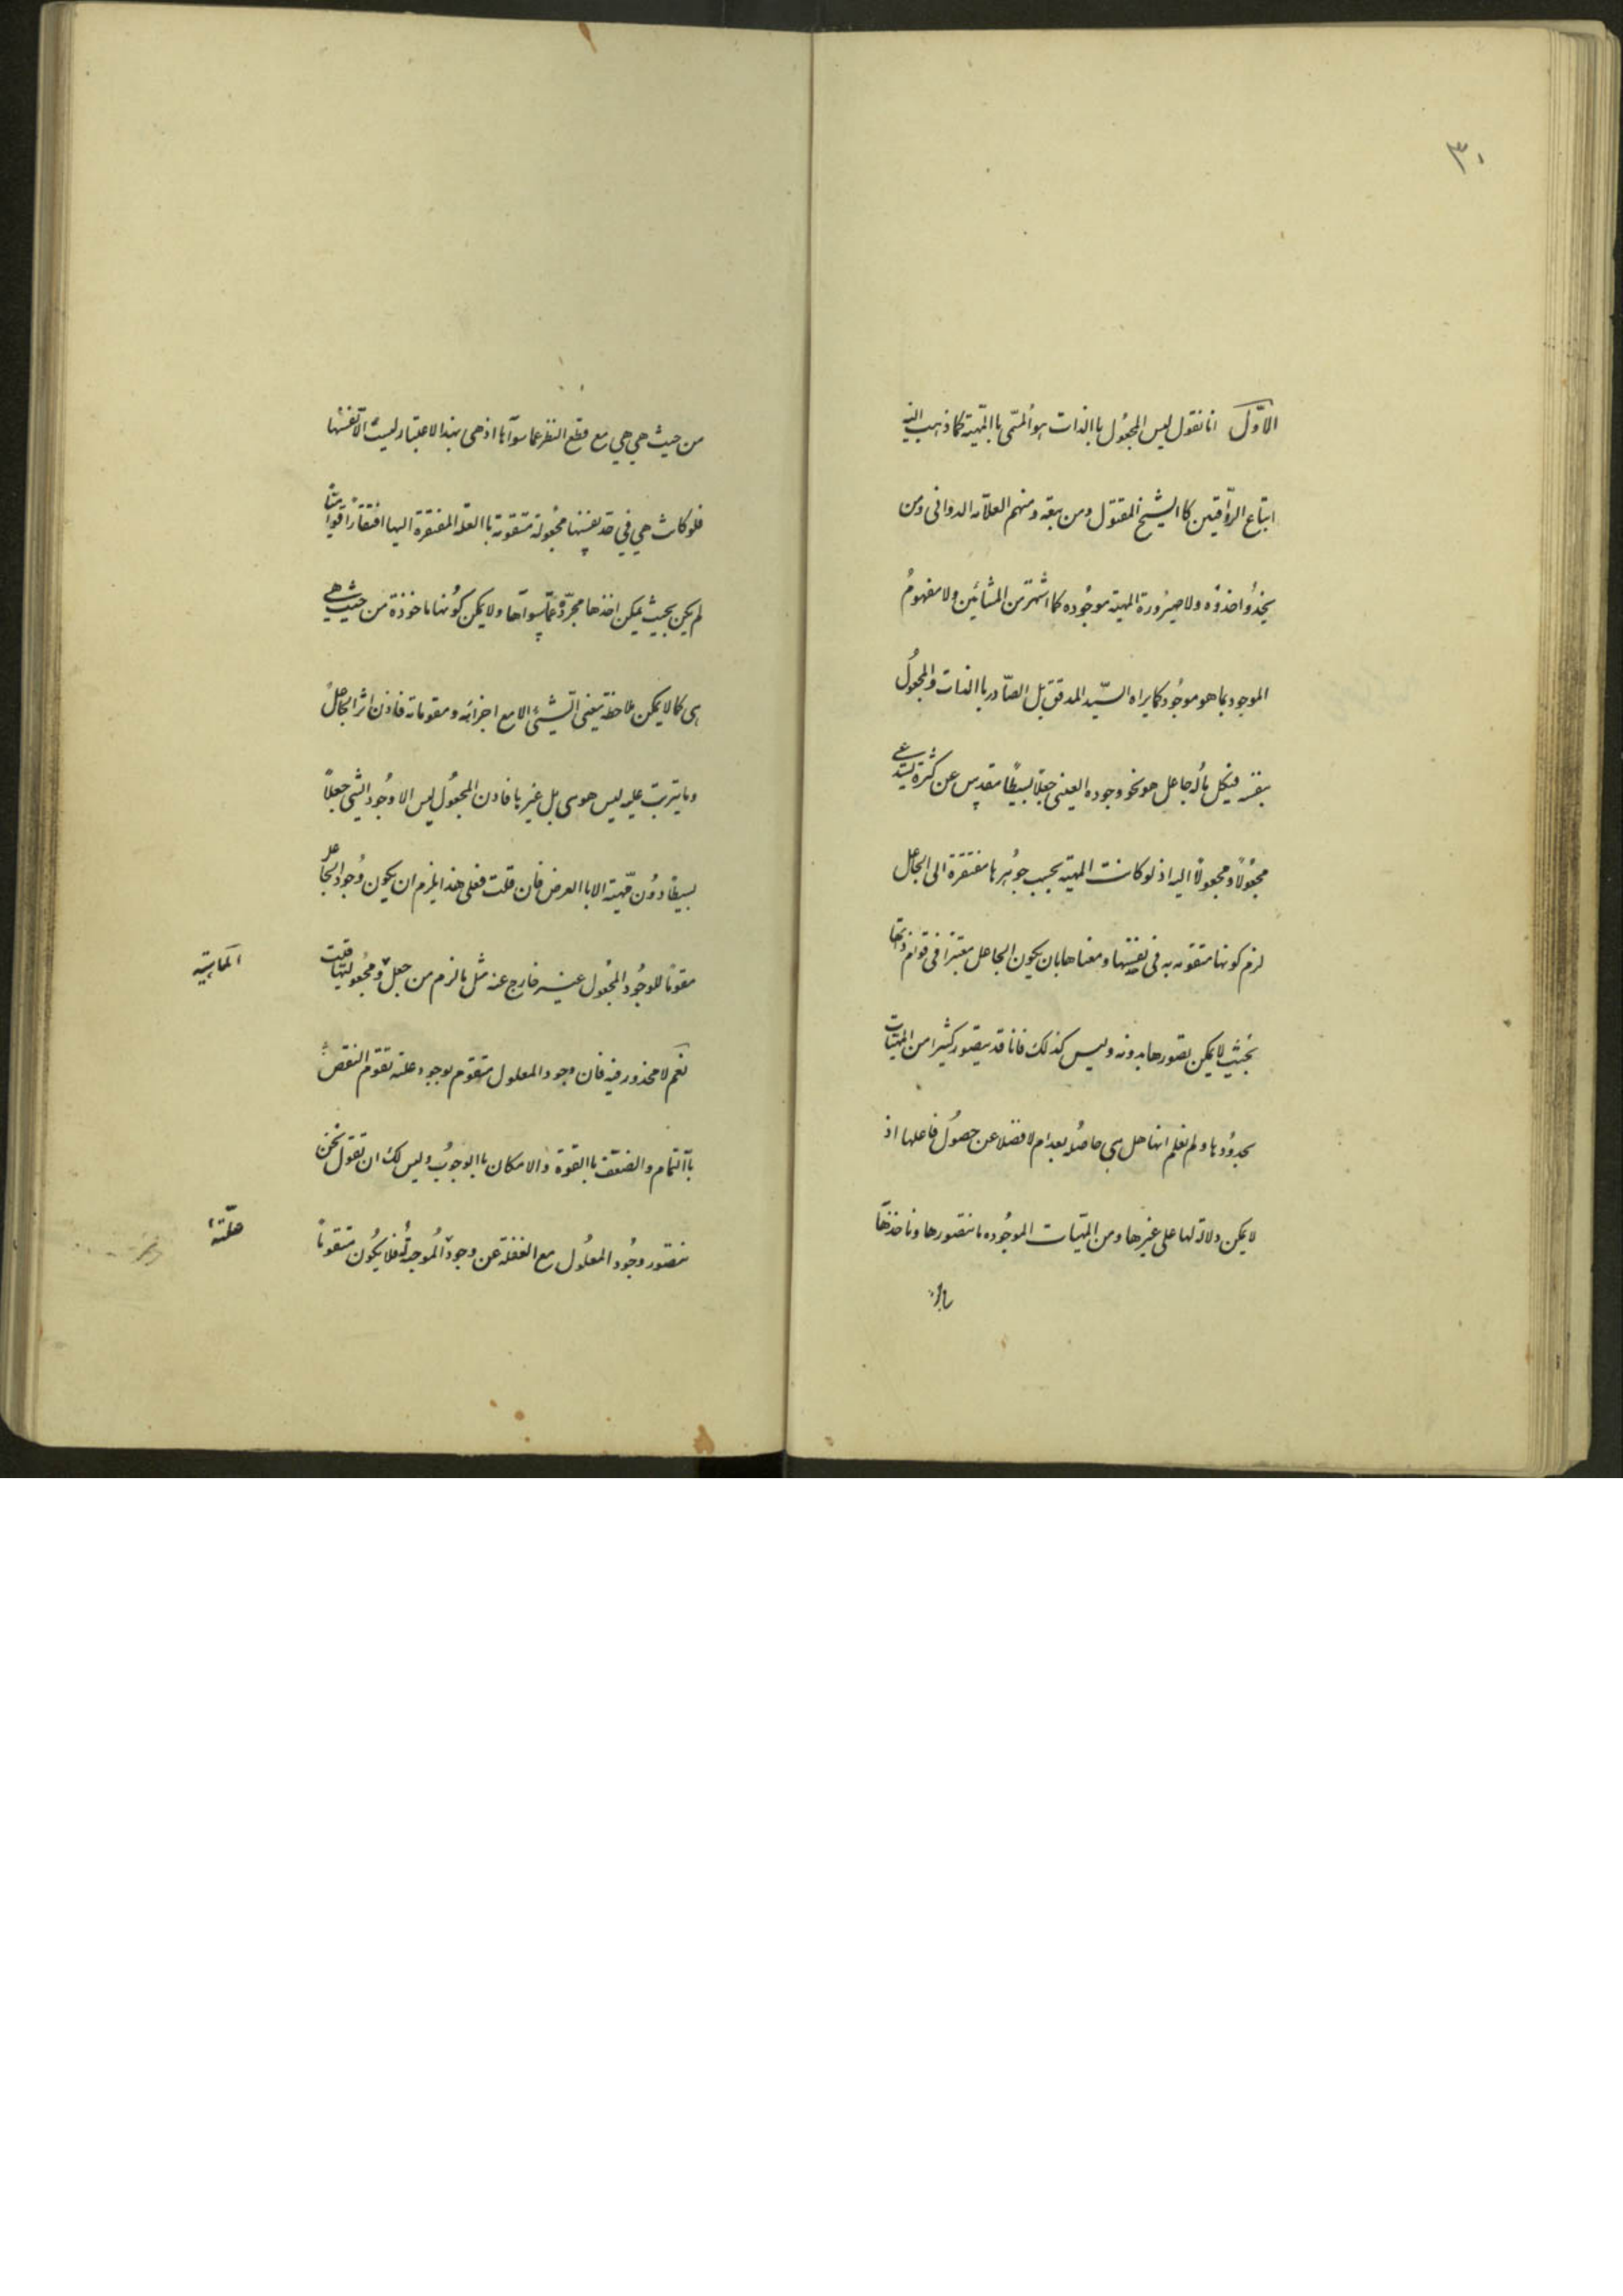 ٣٠
الاوّل انا نقول ليس المجعول باالذات هو المسمّى باالمهيّة كما ذهب اليه
اتباع الرواقيين كاالشيخ المقتول ومن تبعه ومنهم العلامه الدوانى ومن
يحذو احذوه ولا صيرورة المهية موجوده كما اشتهر من المشائين ولا مفهوم
الموجود بما هو موجود كما يراه السيّد المدقق بل الصّادر باالذات والمجعول
بنفسه فى كل ماله جاعل هو نحو وجوده العينى جعلا بسيطا مقدس عن كثرة يستدعى
مجعولا ومجعولا اليه اذ لو كانت المهية بحسب جوهرها مفتقرة الى الجاعل
لزم كونها متقومه به فى نفسها ومعناها بان يكون الجاعل معتبرا فى قوام ذاتها
بحيث لا يمكن تصورها بدونه وليس كذلك فانا قد نتصور كثيرا من المهيّات
بحدودها ولم نعلم انها هل هى حاصله بعد ام لا فضلا عن حصول فاعلها اذ
لا يمكن دلالة لها على غيرها ومن المهيّات الموجوده ما نتصورها وناخذها
من حيث هي هي مع قطع النظر عما سواها اذ هى بهذا الاعتبار ليست الا نفسها
فلو كانت هي في حد نفسها مجعولة متقومة باالعلة المفتقرة اليها افتقارا قواميّا
لم يكن بحيث يمكن اخذها مجرّدة عمّا سواها ولا يمكن كونها ماخوذة من حيث هي
هى كما لا يمكن ملاحظة معنى الشيئ الا مع اجزائه ومقوماته فاذن اثر الجاعل
وما يترتب عليه ليس هو هى بل غيرها فاذن المجعول ليس الا وجود الشى جعلاً
بسيطا دون مهيّته الا باالعرض فان قلت فعلى هذا يلزم ان يكون وجود الجاعل
مقوما للوجود المجعول غير خارج عنه مثل ما لزم من جعل ومجعوليتها قلت
الماهيّة
نعم لا محذور فيه فان وجود المعلول متقوم بوجود علته تقوم النقص
باالتمام والضعف باالقوة والامكان باالوجوب وليس لك ان تقول نحن
نتصور وجود المعلول مع الغفلة عن وجود الموجدة فلا يكون متقوماً
علّته